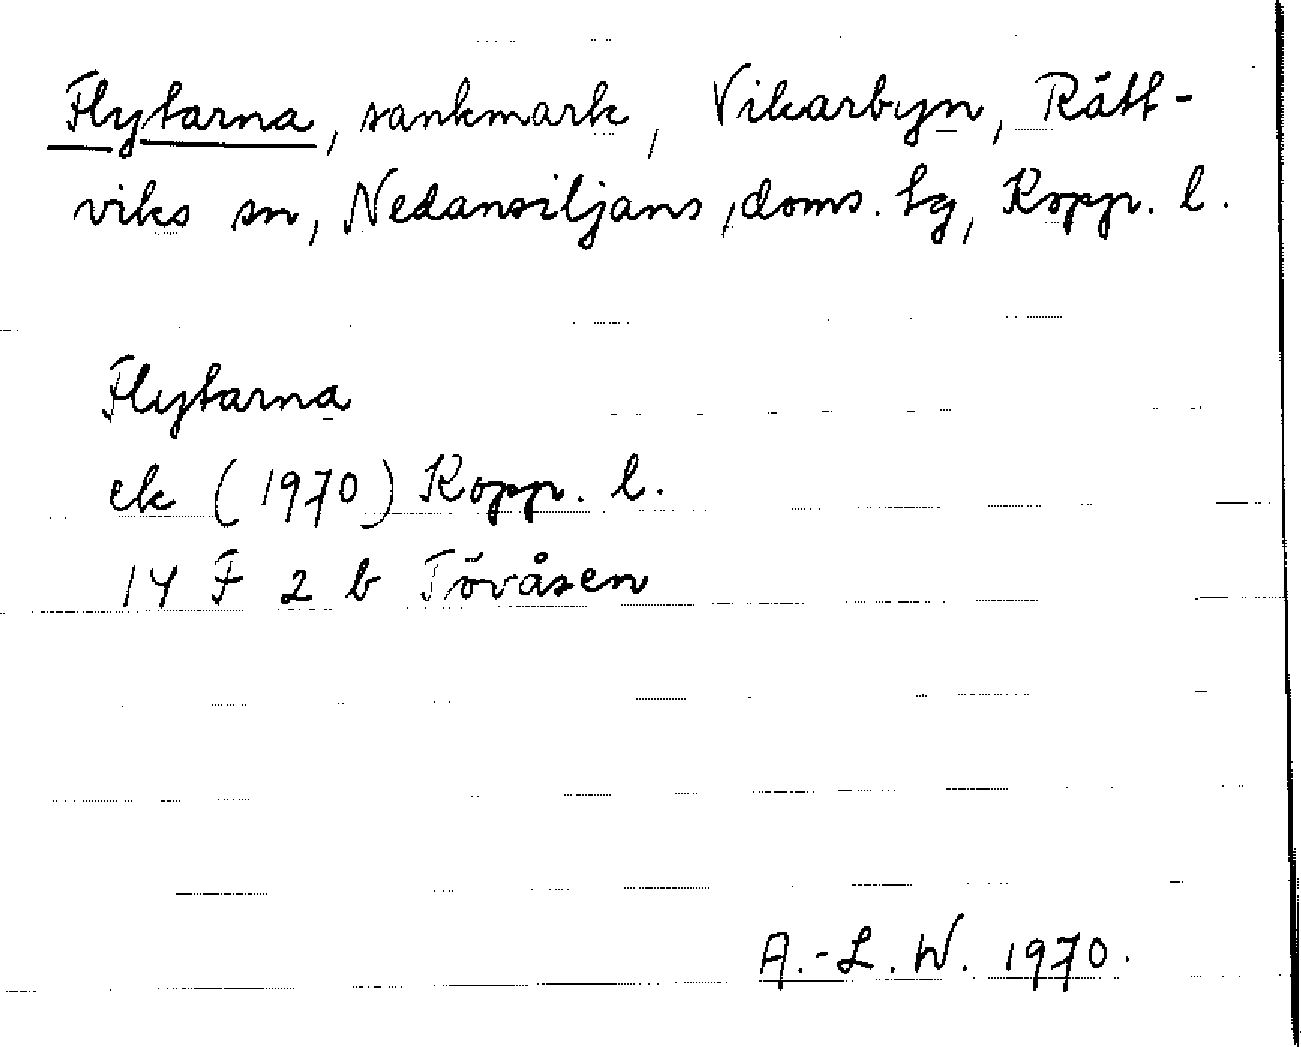 Flytarna, sankmark, Vikarbyn, Rätt-
viks sn, Nedansiljans, doms. tg, Kopp. l.
Flytarna
ek (1970) Kopp. l.
14 F 2 b Tövåsen
A.-L. W. 1970.